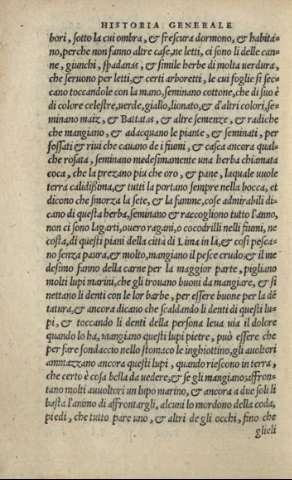 HISTORIA GENERALE
bori, sotto la cui ombra, & frescura dormono, & habita-
no, perche non fanno altre case, ne letti, ci sono li delle can-
ne, giunchi, spadanas, & simile herbe di molta verdura,
che seruono per letti, & certi arboretti, le cui foglie si sec-
cano toccandole con la mano, seminano cottone, che di suo è
di colore celestre, uerde, giallo, lionato, & d'altri colori, se-
minano maiz, & Battatas, & altre semenze, & radiche
che mangiano, & adacquano le piante, & seminati, per
fossati & riui che cauano de i fiumi, & casca ancora qual-
che rosata, seminano medesimamente una herba chiamata
coca, che la prezano piu che oro, & pane, laquale uuole
terra calidissima, & tutti la portano sempre nella bocca, et
dicono che smorza la sete, & la famme, cose admirabili di-
cano di questa herba, seminano & raccogliono tutto l'anno,
non ci sono lagarti, ouero ragani, o cocodrilli nelli fiumi, ne
costa, di questi piani della città di Lima in là, & così pesca-
no senza paura, & molto, mangiano il pesce crudo, & il me
desimo fanno della carne per la maggior parte, pigliano
molti lupi marini, che gli trouano buoni da mangiare, & si
nettano li denti con le lor barbe, per essere buone per la dē
tatura, & ancora dicano che scaldando li denti di questi lu-
pi, & toccando li denti della persona leua uia il dolore
quando lo ha, mangiano questi lupi pietre, può essere che
per fare fondaccio nello stomaco le inghiottino, gli auoltori
ammazzano ancora questi lupi, quando riescono in terra,
che certo è cosa bella da uedere, & se gli mangiano, affron-
tano molti auuoltori un lupo marino, & ancora a due soli li
basta l'animo di affrontargli, alcuni lo mordono della coda,
piedi, che tutto pare uno, & altri de gli occhi, fino che
glieli